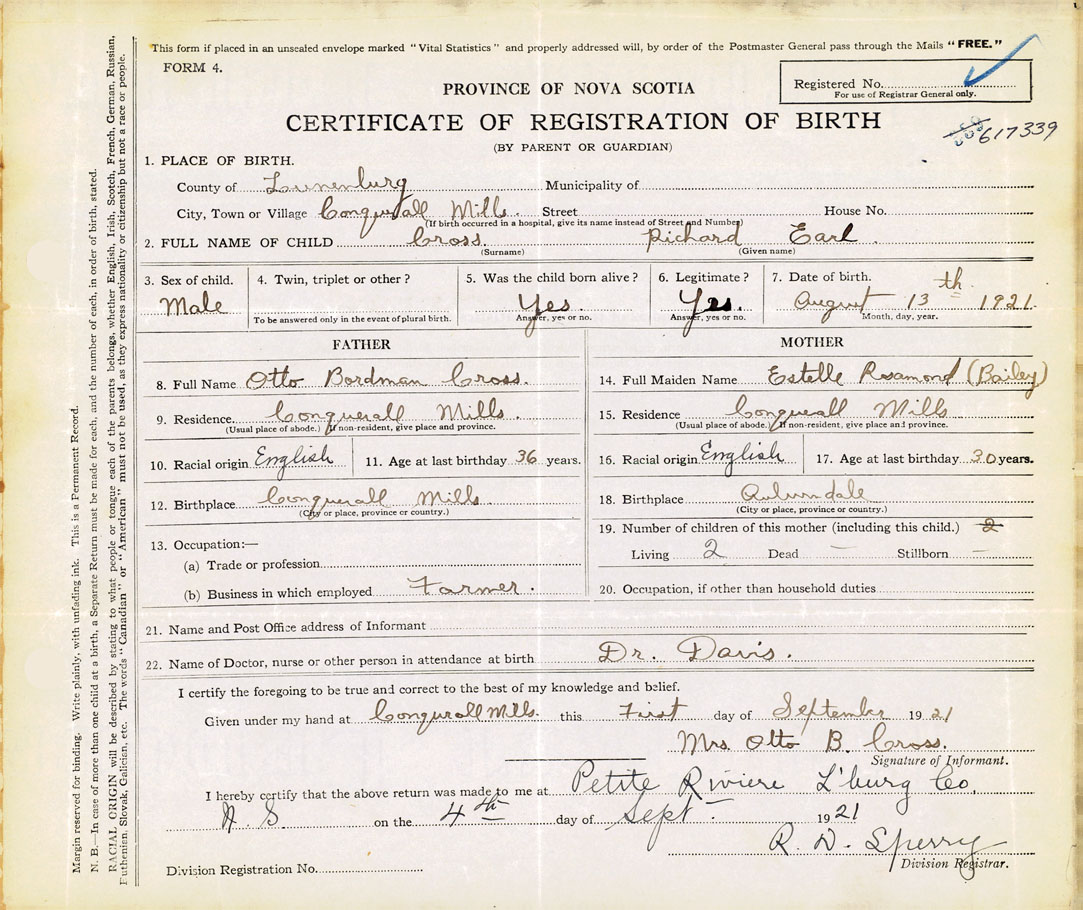 This form if placed in an unsealed envelope marked "Vital Statistics" and properly addressed will, by order of the Postmaster General pass through the Mails "FREE."
FORM 4.
Registered No.
For use of Registrar General only.
PROVINCE OF NOVA SCOTIA
CERTIFICATE OF REGISTRATION OF BIRTH
617339
(BY PARENT OR GUARDIAN)
1. PLACE OF BIRTH.
County of Lunenburg Municipality of
City, Town or Village Conquerall Mills. Street House No.
(If birth occurred in a hospital, give its name instead of Street and Number)
2. FULL NAME OF CHILD Cross. Richard Earl.
(Surname) (Given name)
3. Sex of child. 4. Twin, triplet or other? 5. Was the child born alive? 6. Legitimate? 7. Date of birth.
Male Yes. Yes. August 13th 1921.
To be answered only in the event of plural birth. Answer, yes or no. Answer, yes or no. Month, day, year.
FATHER
8. Full Name Otto Bordman Cross.
9. Residence Conquerall Mills.
(Usual place of abode.) If non-resident, give place and province.
10. Racial origin English 11. Age at last birthday 36 years.
12. Birthplace Conquerall Mills
(City or place, province or country.)
13. Occupation:—
(a) Trade or profession
(b) Business in which employed Farmer.
MOTHER
14. Full Maiden Name Estelle Rosamond (Bailey)
15. Residence Conquerall Mills
(Usual place of abode.) If non-resident, give place and province.
16. Racial origin English 17. Age at last birthday 30 years.
18. Birthplace Auburndale
(City or place, province or country.)
19. Number of children of this mother (including this child.) 2
Living 2 Dead — Stillborn —
20. Occupation, if other than household duties
21. Name and Post Office address of Informant
22. Name of Doctor, nurse or other person in attendance at birth Dr. Davis.
I certify the foregoing to be true and correct to the best of my knowledge and belief.
Given under my hand at Conquerall Mills. this First day of September 1921
Mrs. Otto B. Cross.
Signature of Informant.
I hereby certify that the above return was made to me at Petite Riviere L'burg Co.
N. S. on the 4th day of Sept. 1921
R. D. Sperry
Division Registrar.
Division Registration No.
Margin reserved for binding. Write plainly, with unfading ink. This is a Permanent Record.
N. B.—In case of more than one child at a birth, a Separate Return must be made for each, and the number of each, in order of birth, stated.
RACIAL ORIGIN will be described by stating to what people or tongue each of the parents belongs, whether English, Irish, Scotch, French, German, Russian,
Ruthenian, Slovak, Galician, etc. The words "Canadian" or "American" must not be used, as they express nationality or citizenship but not a race or people.